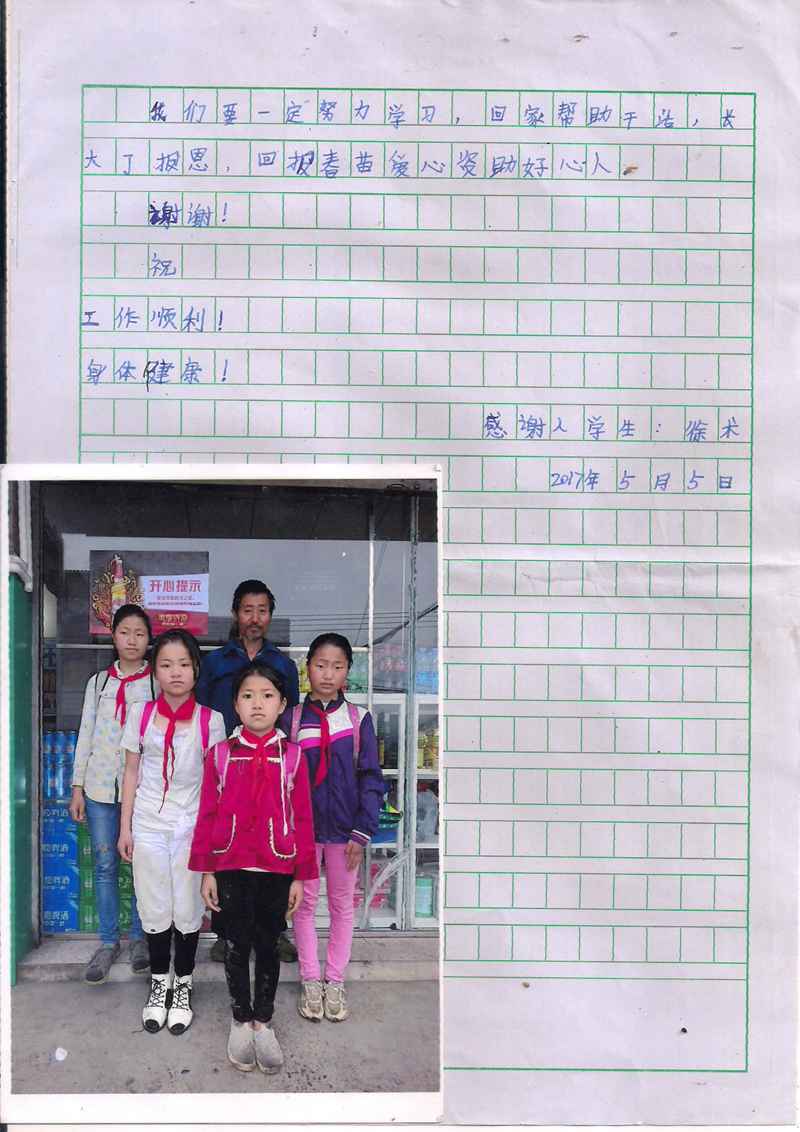 我们要一定努力学习,回家帮助干活,长
大了报恩,回报春苗爱心资助好心人。
謝谢!
祝
工作顺利!
身体健康!
感谢人学生:徐术
2017年5月5日
开心提示